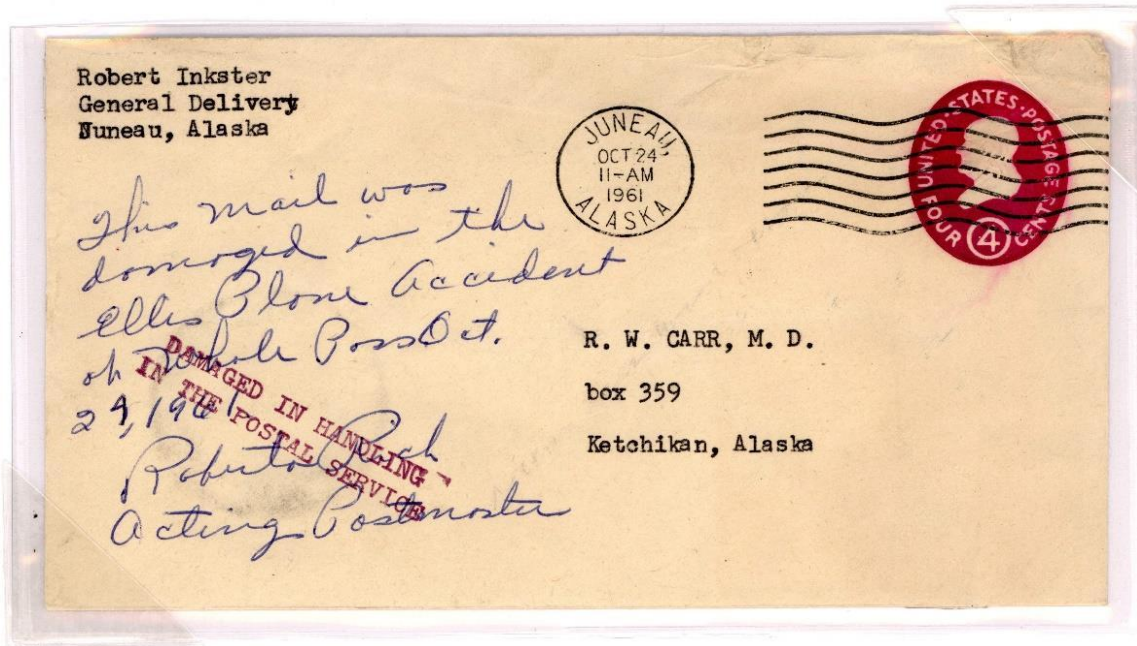 Robert Inkster
General Delivery
Juneau, Alaska
JUNEAU,
OCT 24
11-AM
1961
ALASKA
UNITED·STATES·POSTAGE
FOUR 4 CENTS
This mail was
damaged in the
Ellis Plane accident
at Whale Pass Oct.
24, 1961
Roberta
Acting Postmaster
DAMAGED IN HANDLING
IN THE POSTAL SERVICE
R. W. CARR, M. D.
box 359
Ketchikan, Alaska